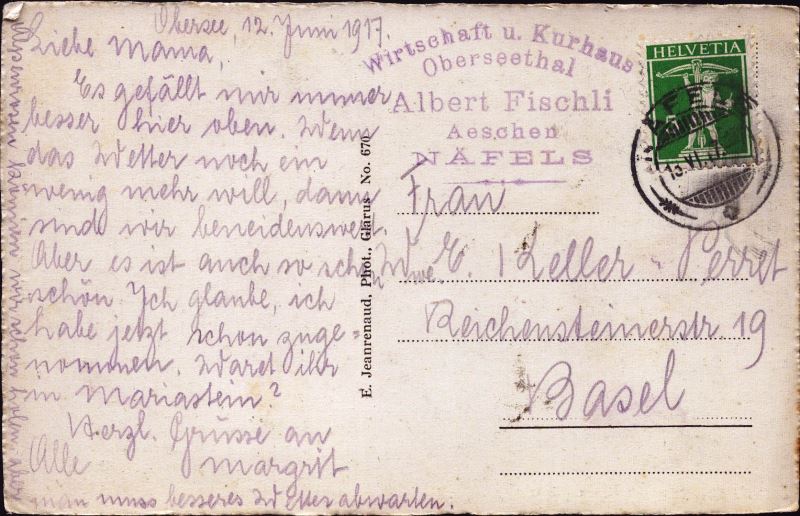 Obersee, 12. Juni 1917.
Liebe Mama,
Es gefällt mir immer
besser hier oben. Wenn
das Wetter noch ein
wenig mehr will, dann
sind wir beneidenswert.
Aber es ist auch so schon
schön. Ich glaube, ich
habe jetzt schon zuge=
nommen. Waret ihr
in Mariastein?
Herzl. Grüsse an
Alle Margrit
man muss besseres Wetter abwarten.
Wirtschaft u. Kurhaus
Oberseethal
Albert Fischli
Aeschen
NÄFELS
HELVETIA
NÄFELS
13.VI.17
E. Jeanrenaud, Phot., Glarus No. 670
Frau
Wwe. E. Keller-Perret
Reichensteinerstr 19
Basel